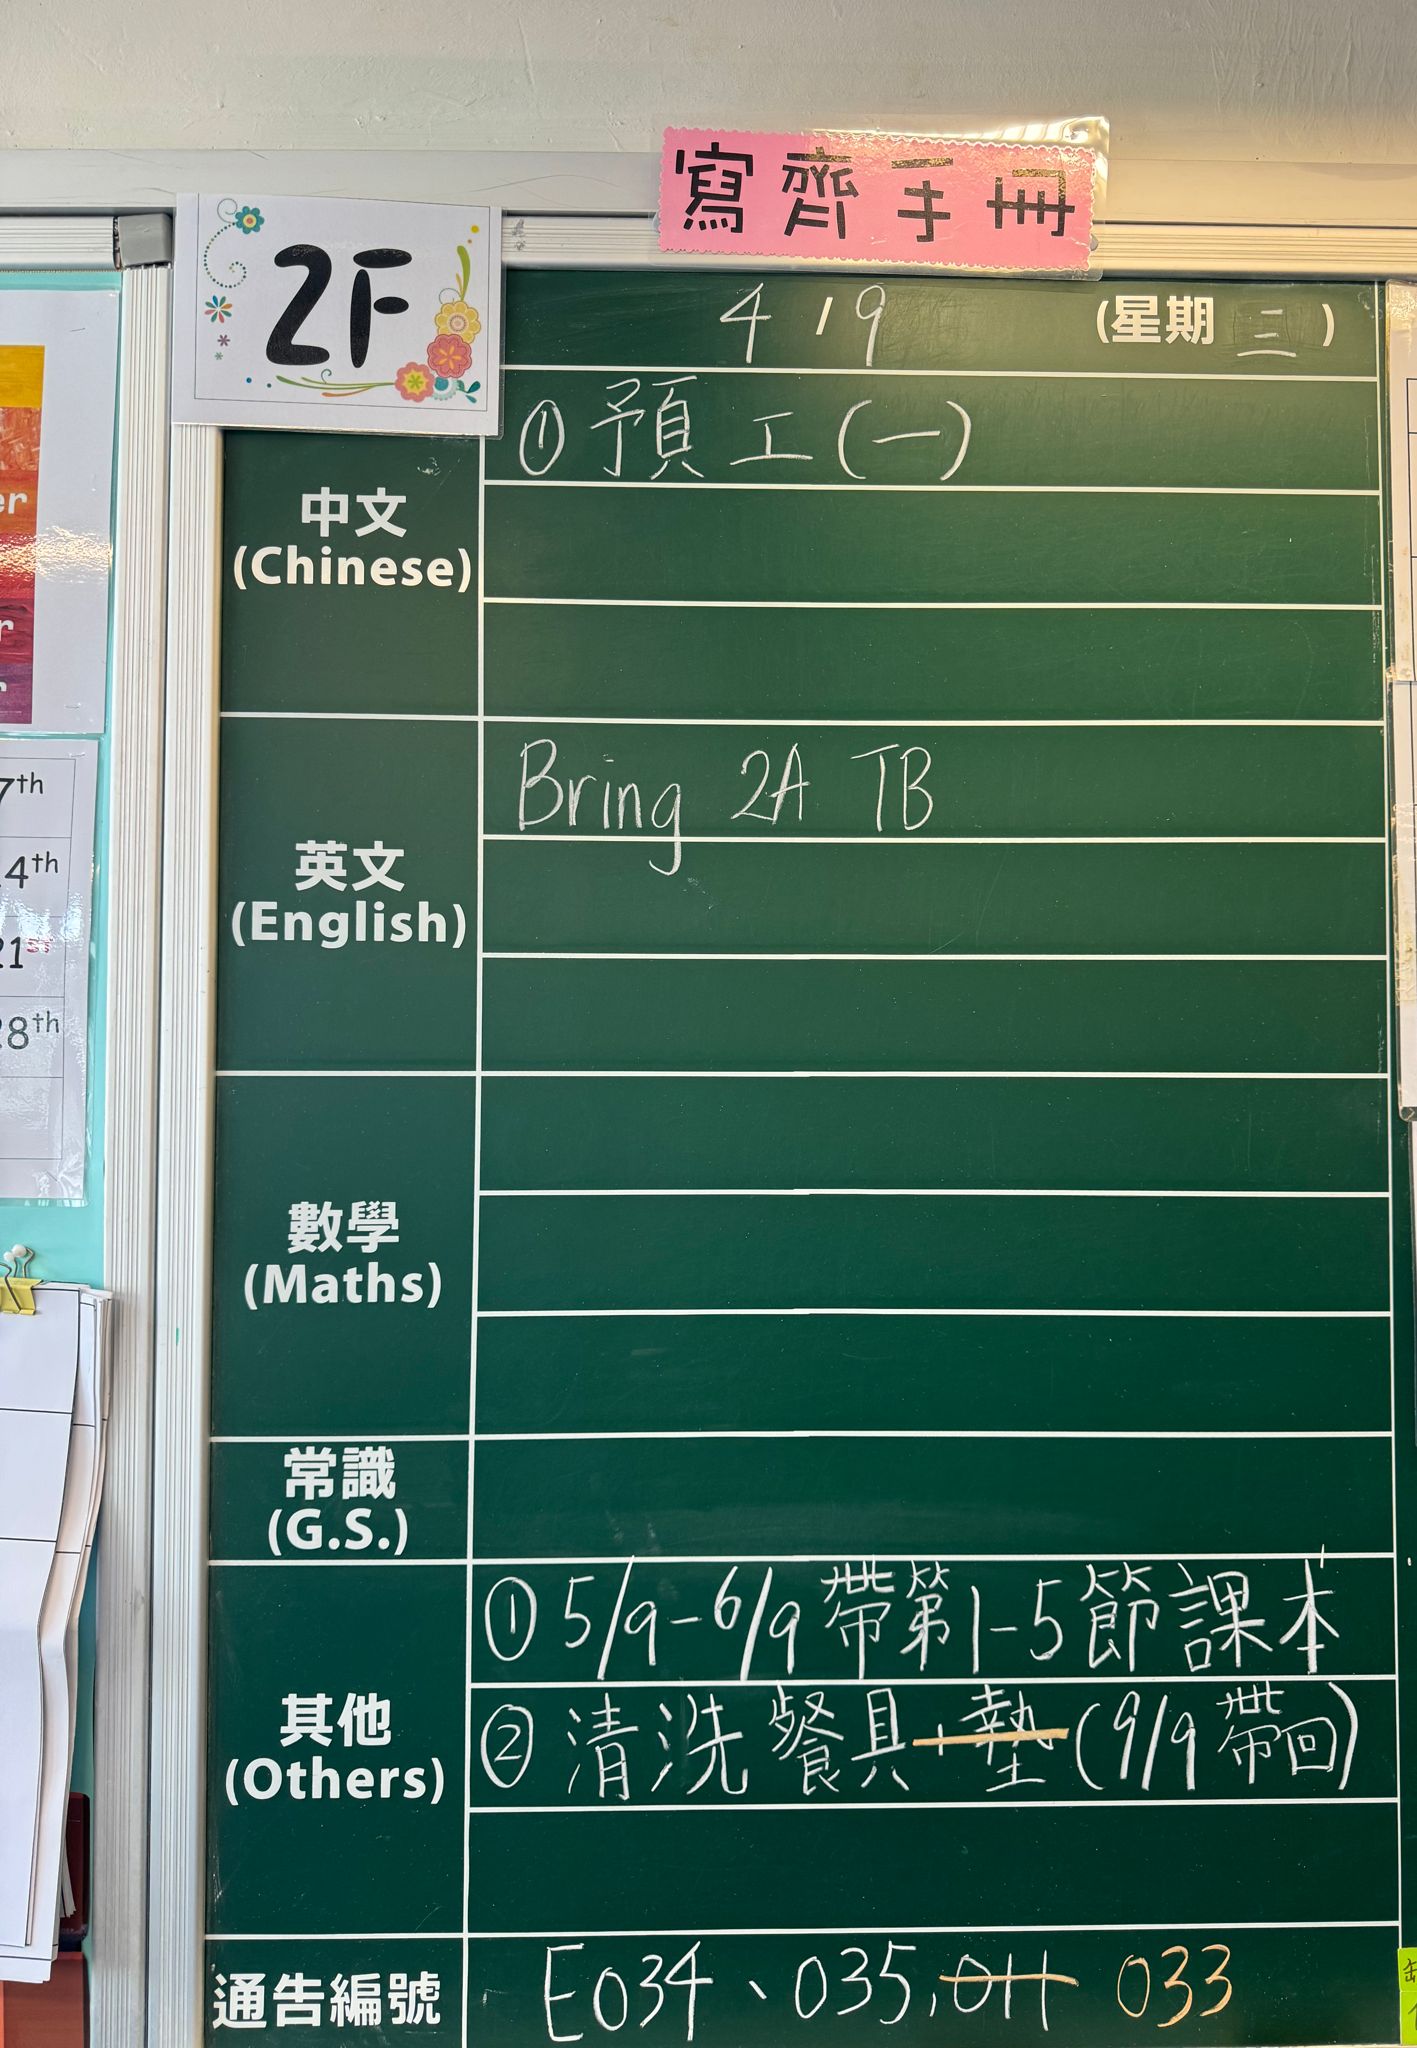 寫齊手冊
2F
4/9 (星期三)
中文
(Chinese)
①預工(一)
英文
(English)
Bring 2A TB
數學
(Maths)
常識
(G.S.)
其他
(Others)
①5/9-6/9帶第1-5節課本
②清洗餐具,墊(9/9帶回)
通告編號
E034、035,011 033
er
r
r
7th
4th
21st
28th